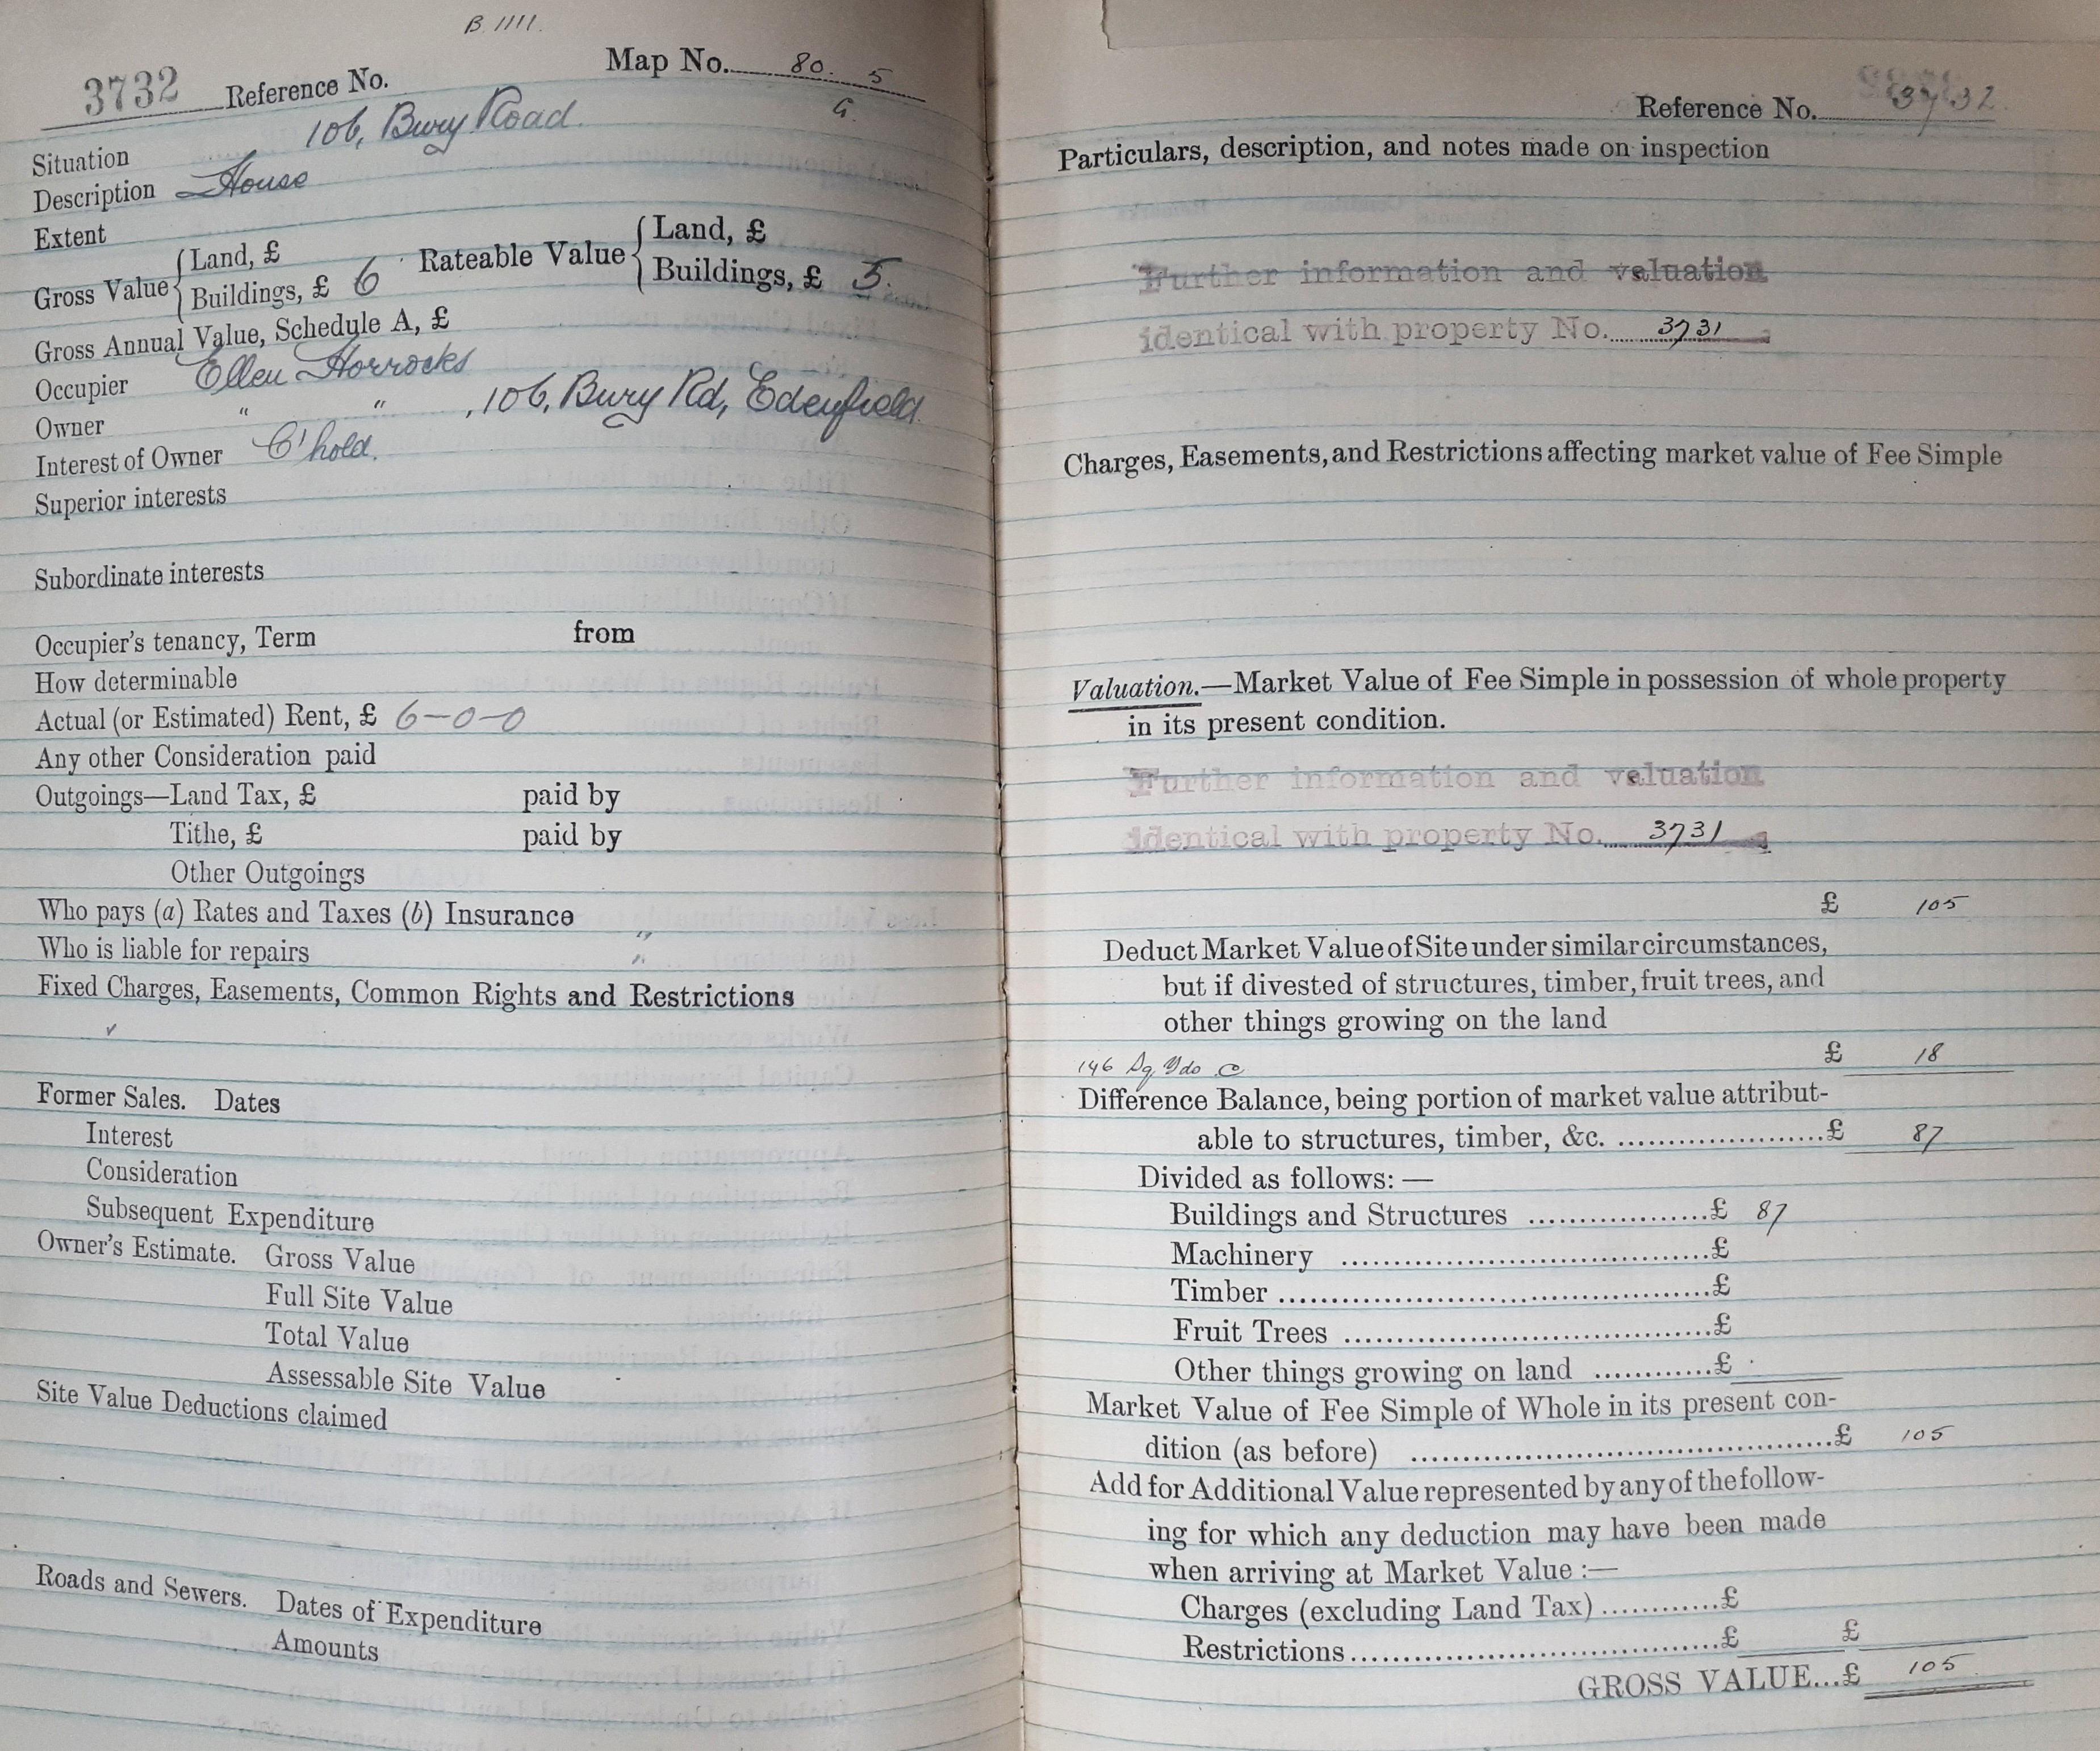 B. 1111.
3732 Reference No. Map No. 80. 5
G.
Situation 106, Bury Road.
Description House
Extent
Gross Value { Land, £
Buildings, £ 6
Rateable Value { Land, £
Buildings, £ 5.
Gross Annual Value, Schedule A, £
Occupier Ellen Horrocks
Owner " " , 106, Bury Rd, Edenfield.
Interest of Owner C'hold.
Superior interests
Subordinate interests
Occupier's tenancy, Term from
How determinable
Actual (or Estimated) Rent, £ 6-0-0
Any other Consideration paid
Outgoings—Land Tax, £ paid by
Tithe, £ paid by
Other Outgoings
Who pays (a) Rates and Taxes (b) Insurance "
Who is liable for repairs "
Fixed Charges, Easements, Common Rights and Restrictions
Former Sales. Dates
Interest
Consideration
Subsequent Expenditure
Owner's Estimate. Gross Value
Full Site Value
Total Value
Assessable Site Value
Site Value Deductions claimed
Roads and Sewers. Dates of Expenditure
Amounts
Reference No. 3732
Particulars, description, and notes made on inspection
Further information and valuation
identical with property No. 3731
Charges, Easements, and Restrictions affecting market value of Fee Simple
Valuation.—Market Value of Fee Simple in possession of whole property
in its present condition.
Further information and valuation
identical with property No. 3731
£ 105
Deduct Market Value of Site under similar circumstances,
but if divested of structures, timber, fruit trees, and
other things growing on the land
146 Sq Yds @ £ 18
Difference Balance, being portion of market value attribut-
able to structures, timber, &c. ....................£ 87
Divided as follows: —
Buildings and Structures ..................£ 87
Machinery ....................................£
Timber ..........................................£
Fruit Trees ....................................£
Other things growing on land ...........£
Market Value of Fee Simple of Whole in its present con-
dition (as before) ..........................................£ 105
Add for Additional Value represented by any of the follow-
ing for which any deduction may have been made
when arriving at Market Value :—
Charges (excluding Land Tax)............£
Restrictions.....................................£ £
GROSS VALUE...£ 105